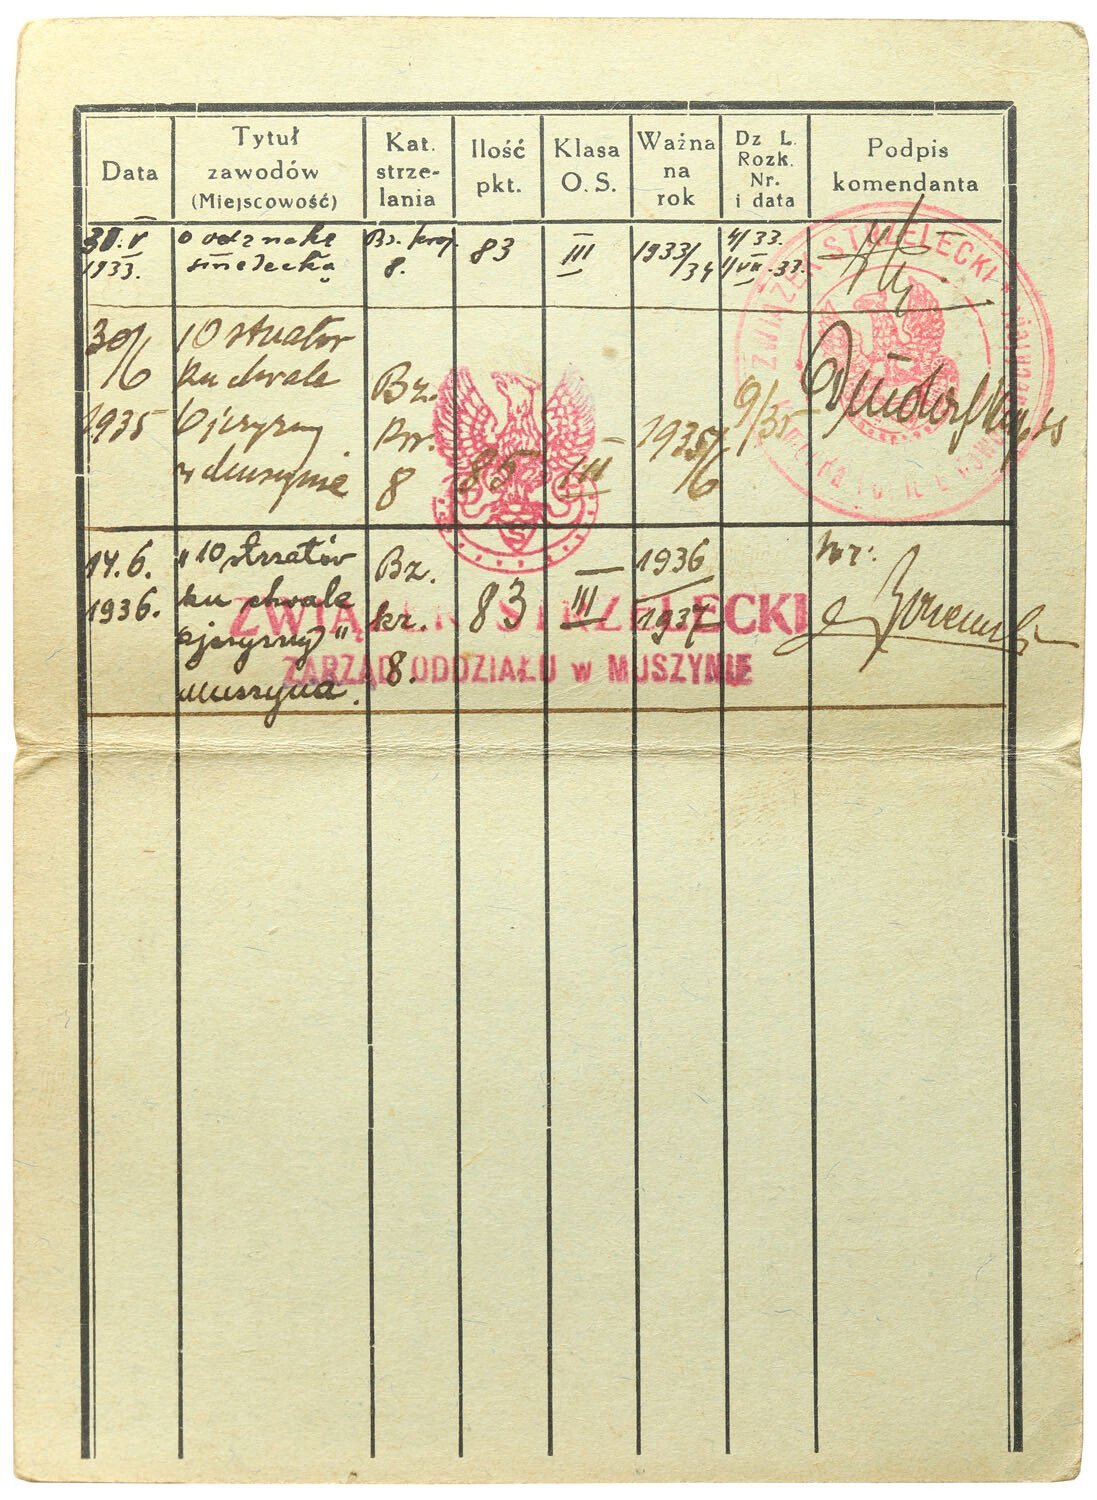 Data
Tytuł
zawodów
(Miejscowość)
Kat.
strze-
lania
Ilość
pkt.
Klasa
O. S.
Ważna
na
rok
Dz L.
Rozk.
Nr.
i data
Podpis
komendanta
V
1933.
o odznakę
strzelecką
Bz.
8.
83
III
1933/34
4/33.
1/VII.33.
30/6
1935
10 strzałów
ku chwale
Ojczyzny
w Muszynie
Bz.
Kr.
8
85
III
1935/6
9/35
14.6.
1936.
"10 strzałów
ku chwale
ojczyzny"
Muszyna.
Bz.
kr.
8.
83
III
1936
1937
ZWIĄZEK STRZELECKI
S
ZWIĄZEK STRZELECKI
ZARZĄD ODDZIAŁU w MUSZYNIE